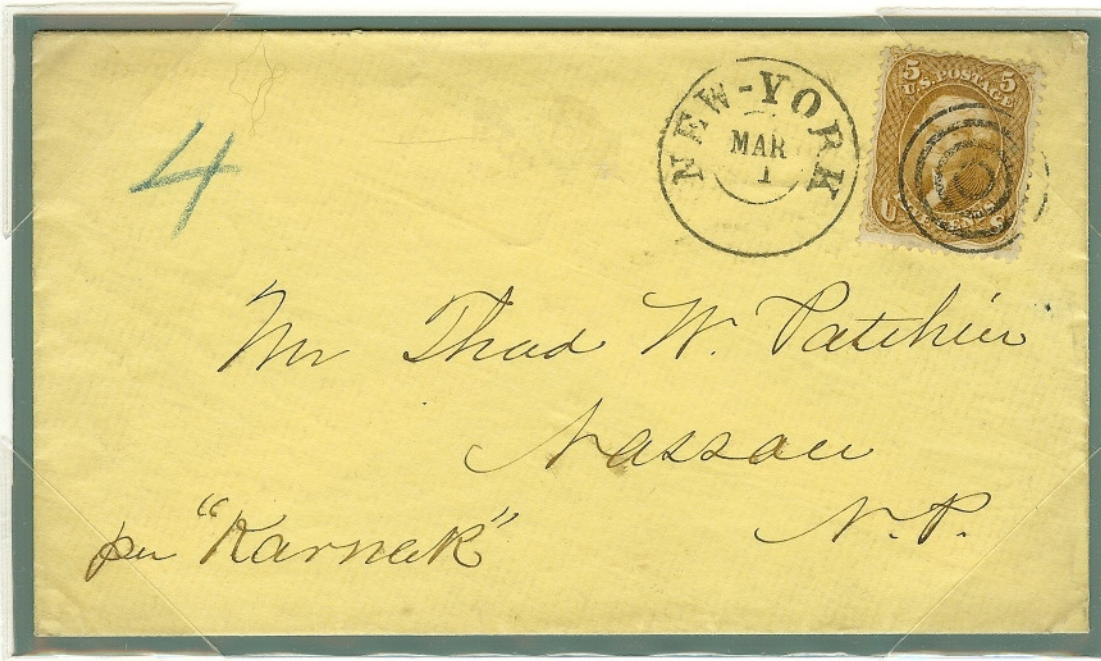 4
NEW-YORK
MAR
1
5 5
U.S. POSTAGE
U S
Mr Thad W. Patchin
Nassau
N. P.
per "Karnak"